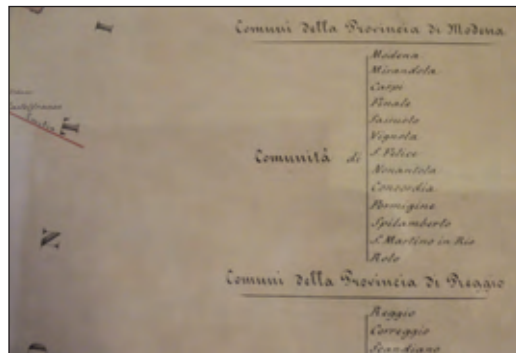 Comuni della Provincia di Modena
Modena
Mirandola
Carpi
Finale
Sassuolo
Vignola
Comunità di
S. Felice
Nonantola
Concordia
Formigine
Spilamberto
S. Martino in Rio
Rolo
Comuni della Provincia di Reggio
Reggio
Correggio
Scandiano
Castelfranco
Emilia
T
N